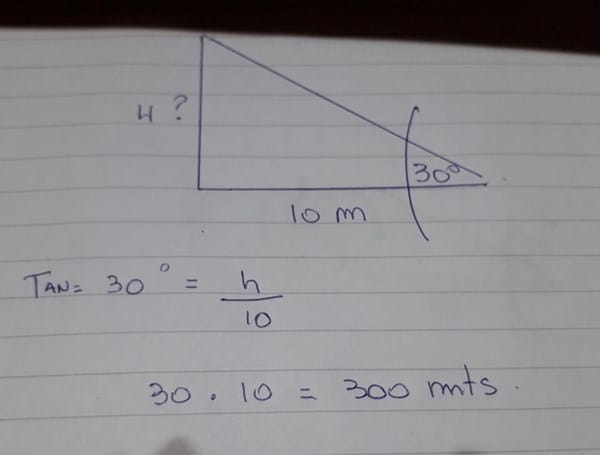 H ?
30°
10 m
TAN= 30° = h
10
30 . 10 = 300 mts.